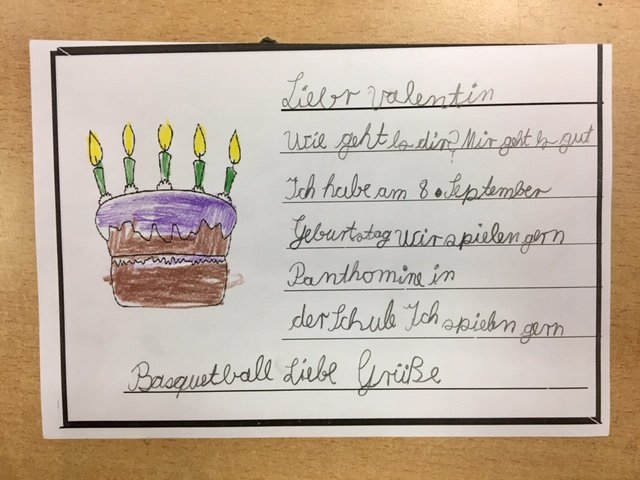 Lieber Valentin
Wie geht es dir? Mir geht es gut
Ich habe am 8. September
Geburtstag Wir spielen gern
Panthomine in
der Schule Ich spielen gern
Basquetball Liebe Grüße